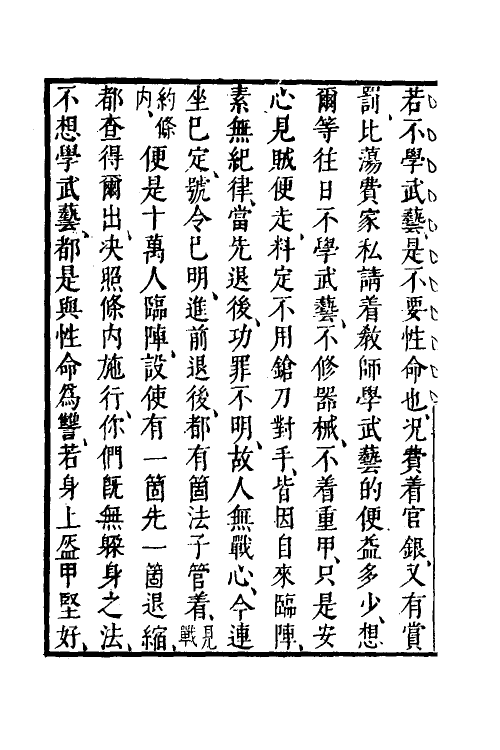 若不學武藝、是不要性命也、况費着官銀、又有賞
罰、比蕩費家私請着教師學武藝的便益多少、想
爾等往日不學武藝、不修器械、不着重甲、只是安
心見賊便走、料定不用鎗刀對手、皆因自來臨陣、
素無紀律、當先退後、功罪不明、故人無戰心、今連
坐已定、號令已明、進前退後、都有箇法子管着、見戰
約條内、便是十萬人臨陣、設使有一箇先一箇退縮、
都查得爾出、决照條内施行、你們旣無躱身之法、
不想學武藝、都是與性命爲讐、若身上盔甲堅好、